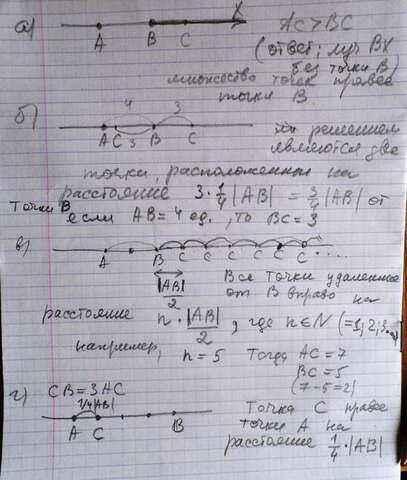 а) A B C X AC>BC
(ответ: луч BX
без точки B)
множество точек правее
точки B.
б) 4 3
A C 3 B C решением
являются две
точки, расположенные на
расстояние 3·1/4|AB| = 3/4|AB| от
точки B
если AB=4 ед., то BC=3
в) A B C C C C C C ....
|AB|/2 Все точки удаленные
от B вправо на
расстояние n·|AB|/2, где n∈N (=1;2;3..)
например, n=5 Тогда AC=7
BC=5
(7-5=2)
г) CB=3AC
1/4|AB|
A C B Точка C правее
точки A на
расстояние 1/4·|AB|